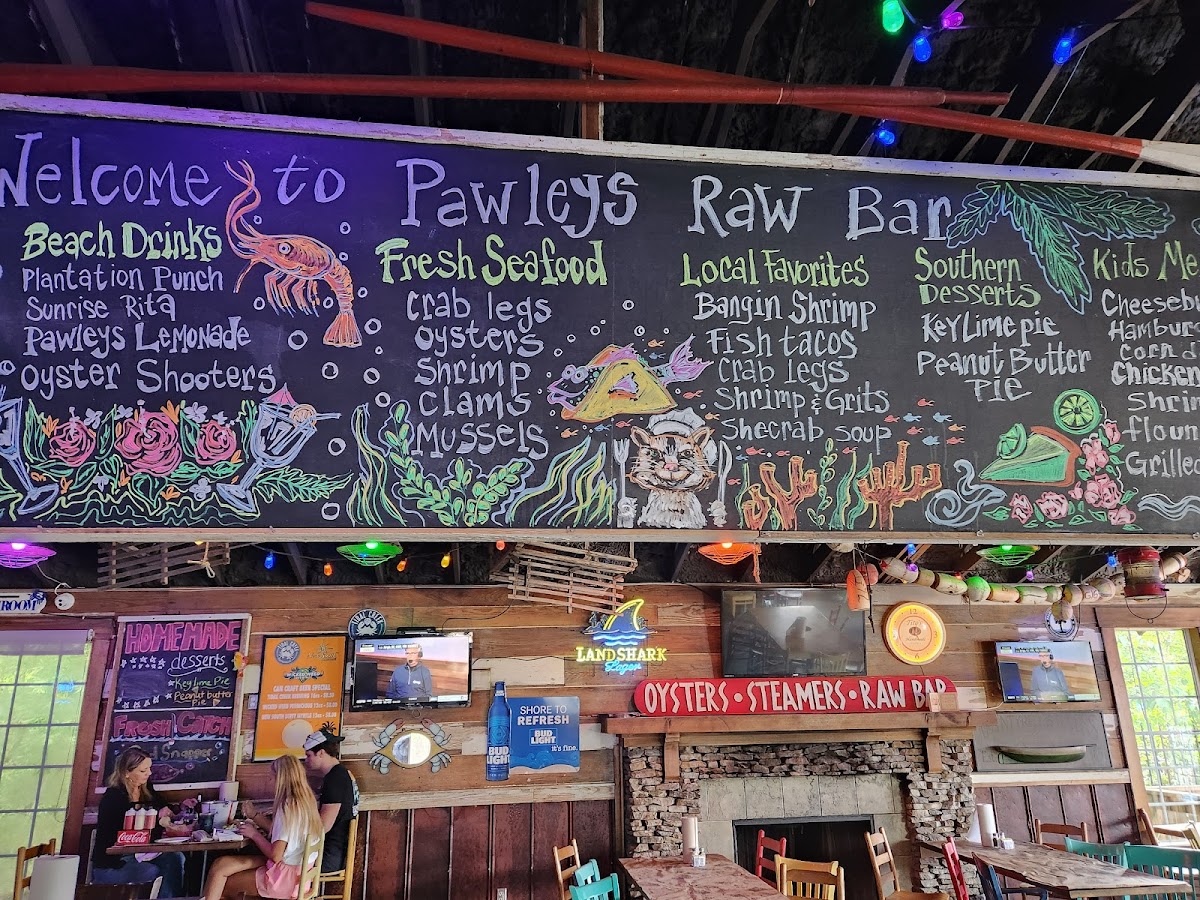 Welcome to Pawleys Raw Bar
Beach Drinks
Plantation Punch
Sunrise Rita
Pawleys Lemonade
Oyster Shooters
Fresh Seafood
Crab legs
Oysters
Shrimp
Clams
Mussels
Local Favorites
Bangin Shrimp
Fish tacos
Crab legs
Shrimp & Grits
Shecrab soup
Southern
Desserts
Key Lime pie
Peanut Butter
Pie
Kids Me
Cheeseb
Hambur
Corn d
Chicken
Shrim
floun
Grilled
ROOM
HOMEMADE
desserts
Key Lime pie
Peanut butter
Pie
Fresh Catch
Snapper
CAN CRAFT BEER SPECIAL
LANDSHARK
Lager
SHORE TO
REFRESH
BUD
LIGHT
it's fine.
BUD
LIGHT
OYSTERS • STEAMERS • RAW BAR
Coca-Cola